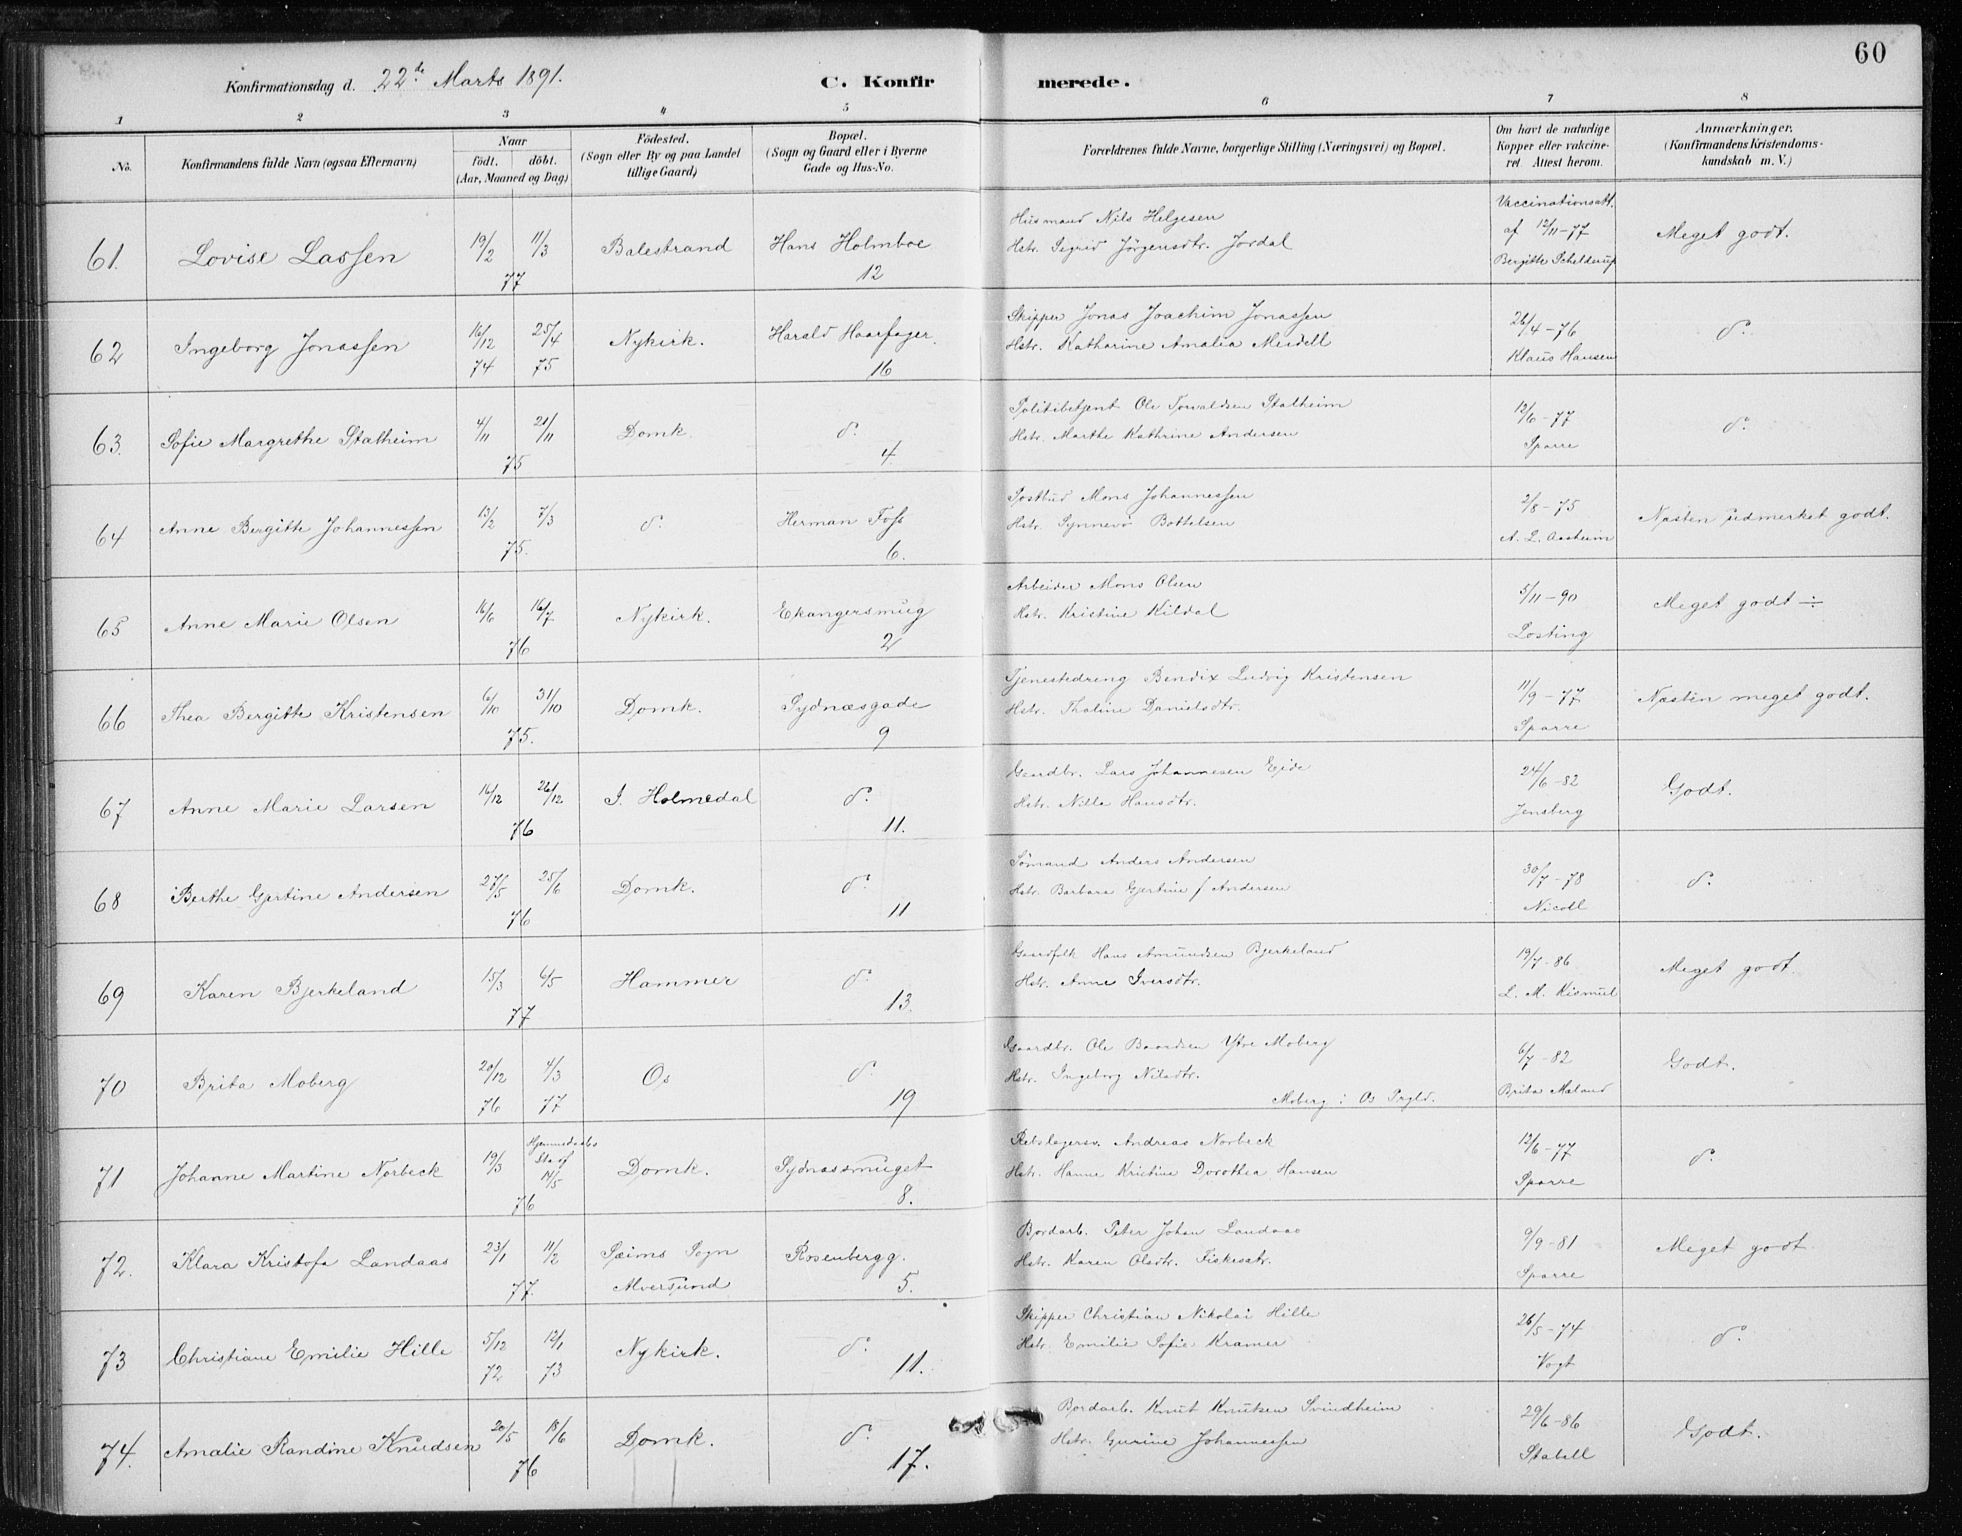 60
Konfirmationsdag d. 22de Marts 1891.
C. Konfir merede.
1 2 3 4 5 6 7 8
No.
Konfirmandens fulde Navn (ogsaa Efternavn)
Naar
födt. döbt.
(Aar, Maaned og Dag)
Födested.
(Sogn eller By og paa Landet
tillige Gaard)
Bopæl.
(Sogn og Gaard eller i Byerne
Gade og Hus-No.
Forældrenes fulde Navne, borgerlige Stilling (Næringsvei) og Bopæl.
Om havt de naturlige
Kopper eller vakcine-
ret. Attest herom.
Anmærkninger.
(Konfirmandens Kristendoms-
kundskab m. V.)
61. Lovise Lassen 19/2 11/3 77 Balestrand Hans Holmboe 12
Husmand Nils Helgesen
Hstr. Sigrid Jörgensdtr. Jordal
Vaccinationsatt.
af 12/11-77
Bergitte Schelderup
Meget godt.
62 Ingeborg Jonassen 16/12 74 25/4 75 Nykirk. Harald Haarfager. 16
Skipper Jonas Joachim Jonassen
Hstr. Katharine Amalia Meidell
26/4-76
Klaus Hansen
d°
63. Sofie Margrethe Stalheim 4/11 21/11 75 Domk. d° 4
Politibetjent Ole Torvaldsen Stalheim
Hstr. Marthe Kathrine Andersen
12/6-77
Sparre
d°
64 Anne Bergitte Johannessen 13/2 7/3 75. d° Herman Foss 6.
Postbud Mons Johannessen
Hstr. Synnevö Bottelsen
2/8-75
A. L. Aasheim
Næsten udmerket godt.
65 Anne Marie Olsen 16/6 16/7 76 Nykirk. Ekangersmug 2
Arbeider Mons Olsen
Hstr. Kristine Kildal
5/11-90
Losting
Meget godt ÷
66 Thea Bergitte Kristensen 6/10 31/10 75. Domk. Sydnæsgade 9
Tjenestedreng Bendix Ludvig Kristensen
Hstr. Thaline Danielsdtr.
11/9-77
Sparre
Næsten meget godt.
67 Anne Marie Larsen 16/12 26/12 76 I. Holmedal d° 11.
Gaardbr. Lars Johannesen Eide
Hstr. Nilla Hansdtr.
24/6-82
Jensberg
Godt.
68 Berthe Gjertine Andersen 27/5 25/6 76 Domk. d° 11
Sömand Anders Andersen
Hstr. Barbara Gjertine f Andersen
30/7-78
Nicoll
d°
69 Karen Bjerkeland 15/3 6/5 77 Hammer d° 13.
Gaardfolk Hans Amundsen Bjerkeland
Hstr. Anne Iversdtr.
19/7-86
L. M. Kismul
Meget godt.
70 Brita Moberg 20/12 76 4/3 77 Os d° 19
Gaardbr. Ole Baardsen Ytre Moberg
Hstr. Ingeborg Nilsdtr.
Moberg i Os Prgld.
6/7-82
Brita Mæland
Godt.
71 Johanne Martine Norbeck 19/3 Hjemmedaabs Stadf 14/5 76 Domk. Sydnæssmuget 8.
Rebslagersv. Andreas Norbeck
Hstr. Hanne Kristine Dorothea Hansen
12/6-77
Sparre
d°
72. Klara Kristofa Landaas 23/1 11/2 77. Sæims Sogn Alversund Rosenbergg. 5.
Bordarb. Peter Johan Landaas
Hstr. Karen Olsdtr. Fiskesetr.
9/9-81
Sparre
Meget godt
73 Christiane Emilie Hille 5/12 72 12/1 73 Nykirk. d° 11.
Skipper Christian Nikolai Hille
Hstr. Emilie Sofie Kramer
26/5-74
Vogt
d°
74. Amalie Randine Knudsen 20/5 18/6 76 Domk. d° 17.
Bordarb. Knut Knutsen Svindheim
Hstr. Gurine Johannessen
29/6-86
Stabell
Godt.